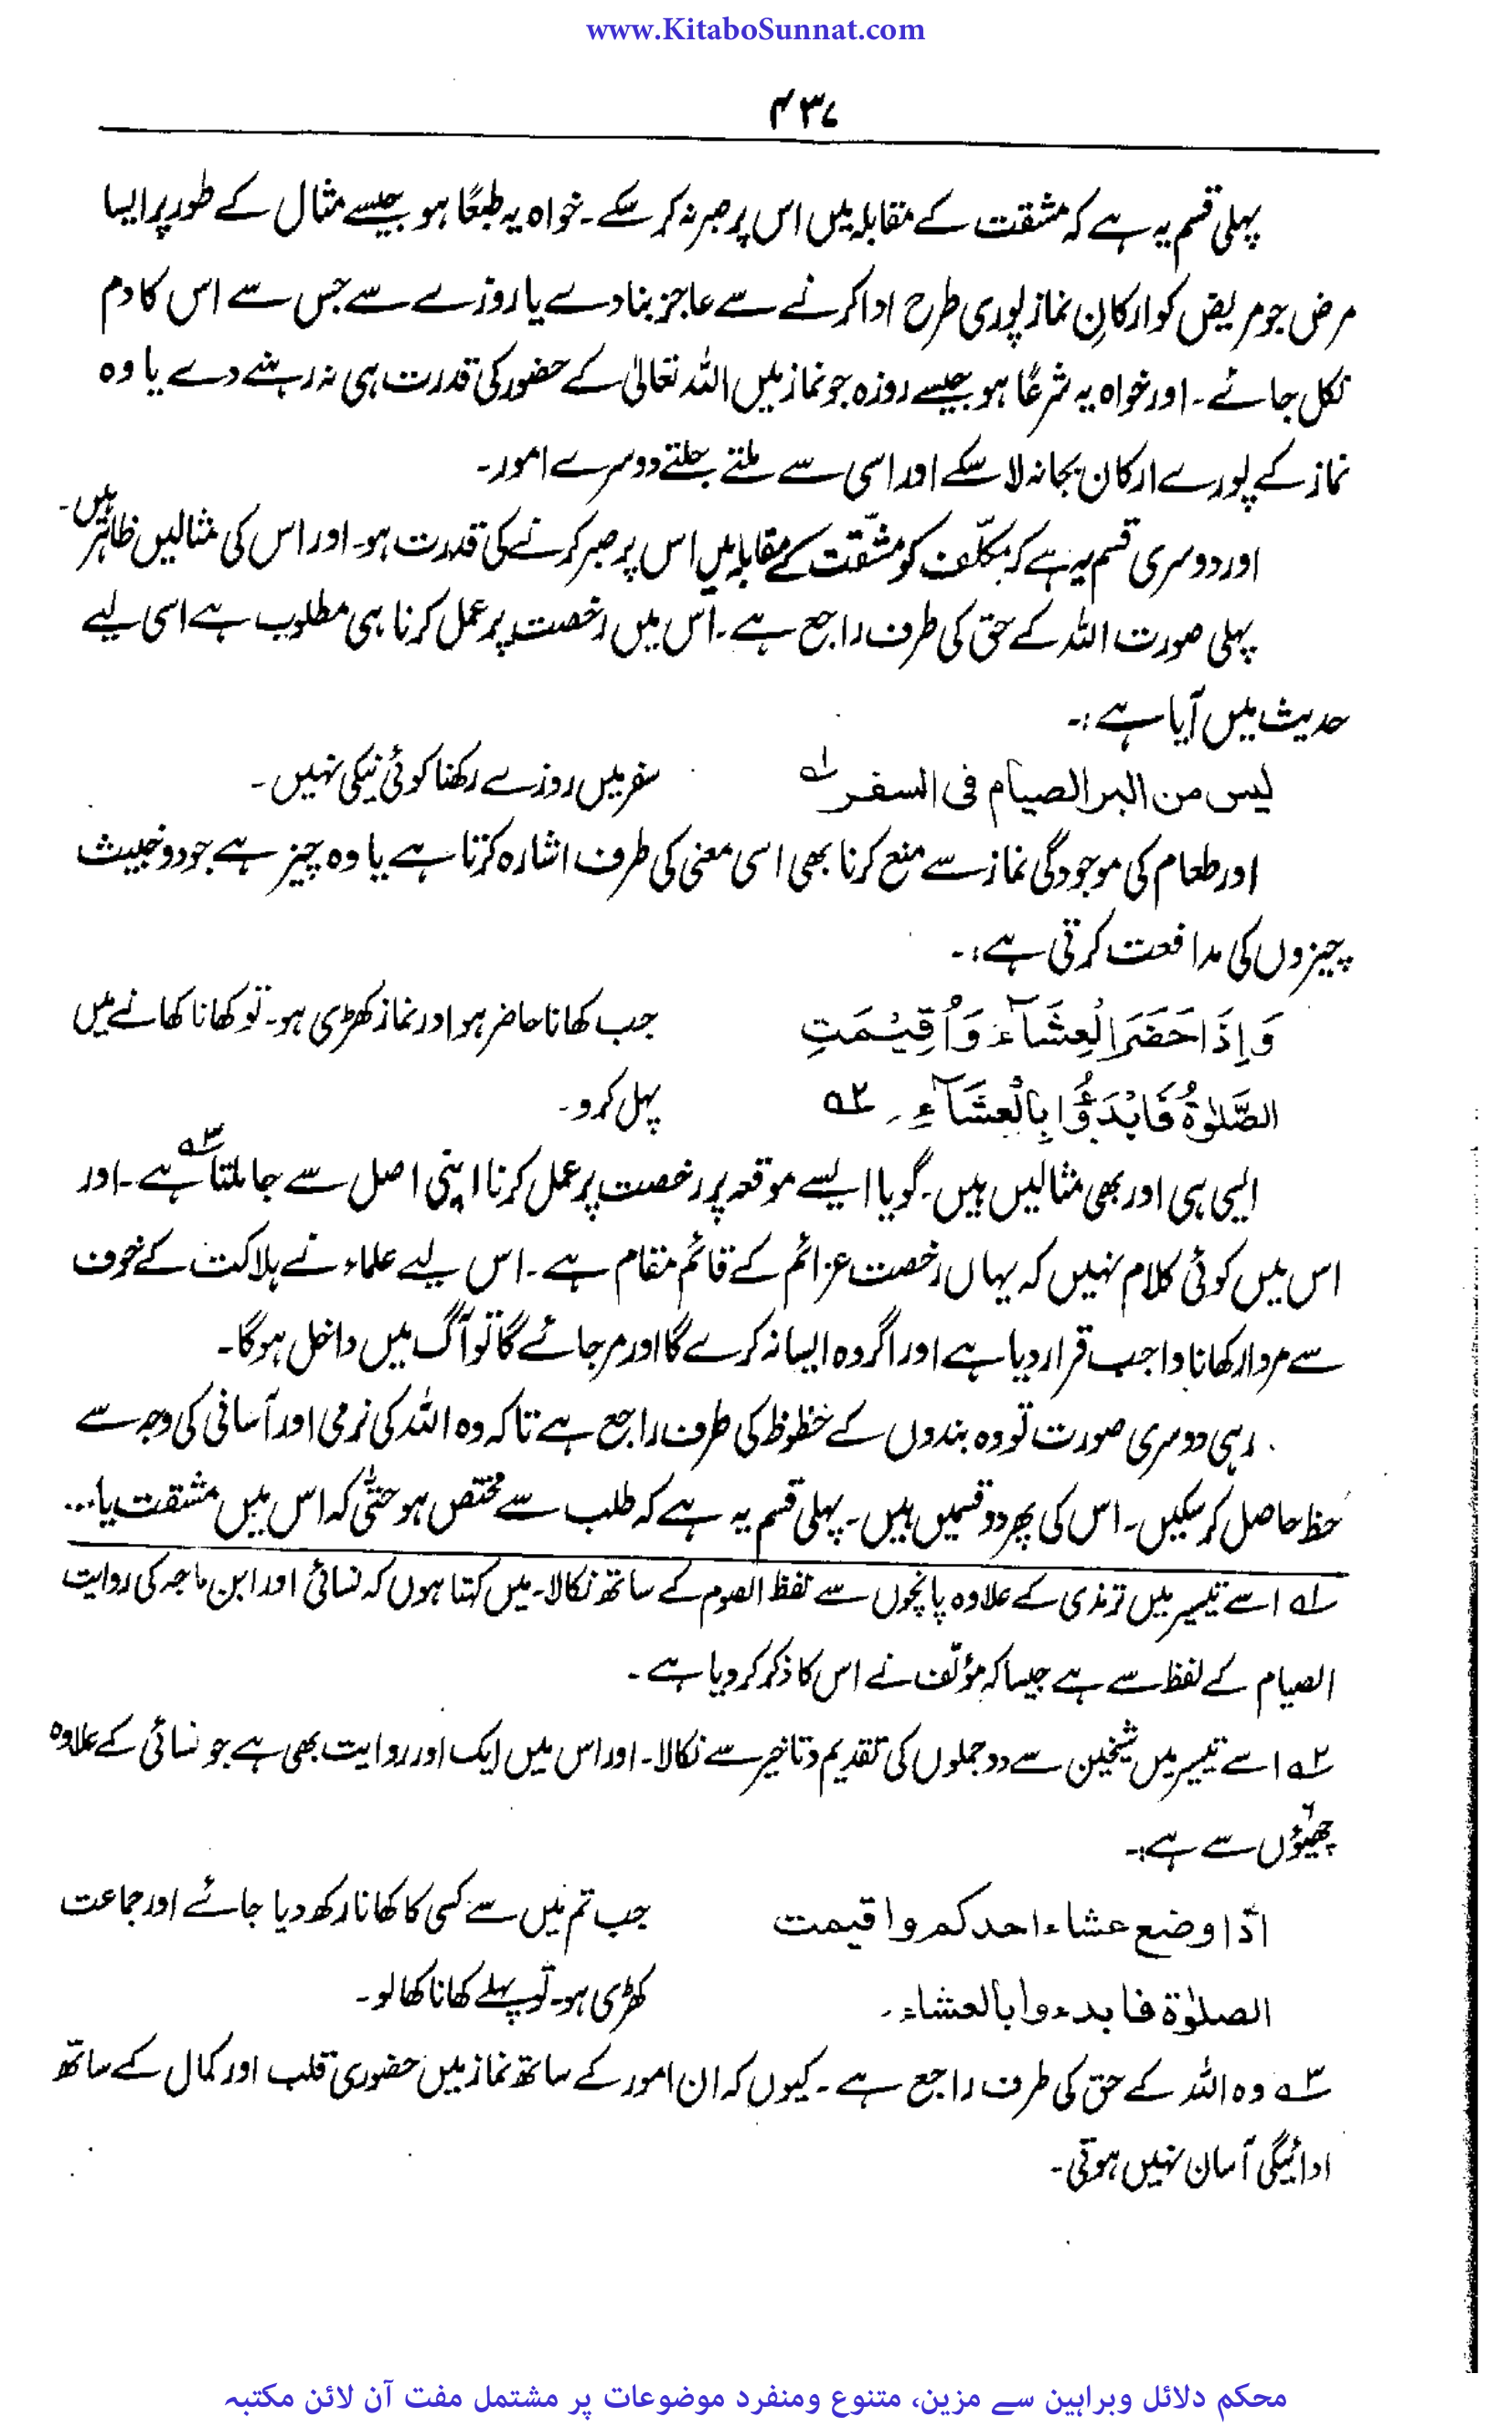 www.KitaboSunnat.com
۴۳۷
پہلی قسم یہ ہے کہ مشقت کے مقابلہ میں اس پر صبر نہ کر سکے۔ خواہ یہ طبعًا ہو جیسے مثال کے طور پر ایسا
مرض جو مریض کو ارکانِ نماز پوری طرح ادا کرنے سے عاجز بنا دے یا روزے سے جس سے اس کا دم
نکل جائے۔ اور خواہ یہ شرعًا ہو جیسے روزہ جو نماز میں اللہ تعالیٰ کے حضور کی قدرت ہی نہ رہنے دے یا وہ
نماز کے پورے ارکان بجا نہ لا سکے اور اسی سے ملتے جلتے دوسرے امور۔
اور دوسری قسم یہ ہے کہ مکلّف کو مشقّت کے مقابلہ میں اس پر صبر کرنے کی قدرت ہو۔ اور اس کی مثالیں ظاہر ہیں۔
پہلی صورت اللہ کے حق کی طرف راجع ہے۔ اس میں رخصت پر عمل کرنا ہی مطلوب ہے اسی لیے
حدیث میں آیا ہے:۔
لیس من البر الصیام فی السفر ۱؎ سفر میں روزے رکھنا کوئی نیکی نہیں۔
اور طعام کی موجودگی نماز سے منع کرنا بھی اسی معنی کی طرف اشارہ کرتا ہے یا وہ چیز ہے جو دو خبیث
چیزوں کی مدافعت کرتی ہے:۔
وَإِذَا حَضَرَ الْعِشَآءَ وَاُقِيْمَتِ جب کھانا حاضر ہو اور نماز کھڑی ہو۔ تو کھانا کھانے میں
الصَّلٰوةُ فَابْدَؤُا بِالْعِشَآءِ۔ ۲؎ پہل کرو۔
ایسی ہی اور بھی مثالیں ہیں۔ گویا ایسے موقعہ پر رخصت پر عمل کرنا اپنی اصل سے جا ملتا ۳؎ ہے۔ اور
اس میں کوئی کلام نہیں کہ یہاں رخصت عزائم کے قائم مقام ہے۔ اس لیے علماء نے ہلاکت کے خوف
سے مردار کھانا واجب قرار دیا ہے اور اگر وہ ایسا نہ کرے گا اور مر جائے گا تو آگ میں داخل ہوگا۔
رہی دوسری صورت تو وہ بندوں کے حظوظ کی طرف راجع ہے تاکہ وہ اللہ کی نرمی اور آسانی کی وجہ سے
حظ حاصل کر سکیں۔ اس کی پھر دو قسمیں ہیں۔ پہلی قسم یہ ہے کہ طلب سے مختص ہو حتٰی کہ اس میں مشقت یا...
۱؎ اسے تیسیر میں ترمذی کے علاوہ پانچوں سے لفظ الصوم کے ساتھ نکالا۔ میں کہتا ہوں کہ نسائی اور ابن ماجہ کی روایت
الصیام کے لفظ سے ہے جیسا کہ مؤلف نے اس کا ذکر کر دیا ہے۔
۲؎ اسے تیسیر میں شیخین سے دو جملوں کی تقدیم و تاخیر سے نکالا۔ اور اس میں ایک اور روایت بھی ہے جو نسائی کے علاوہ
چھیؤں سے ہے:۔
اذا وضع عشاء احدکم واقیمت جب تم میں سے کسی کا کھانا رکھ دیا جائے اور جماعت
الصلوٰة فابدءوا بالعشاء۔ کھڑی ہو۔ تو پہلے کھانا کھا لو۔
۳؎ وہ اللہ کے حق کی طرف راجع ہے۔ کیوں کہ ان امور کے ساتھ نماز میں حضوری قلب اور کمال کے ساتھ
ادائیگی آسان نہیں ہوتی۔
محکم دلائل وبراہین سے مزین، متنوع ومنفرد موضوعات پر مشتمل مفت آن لائن مکتبہ